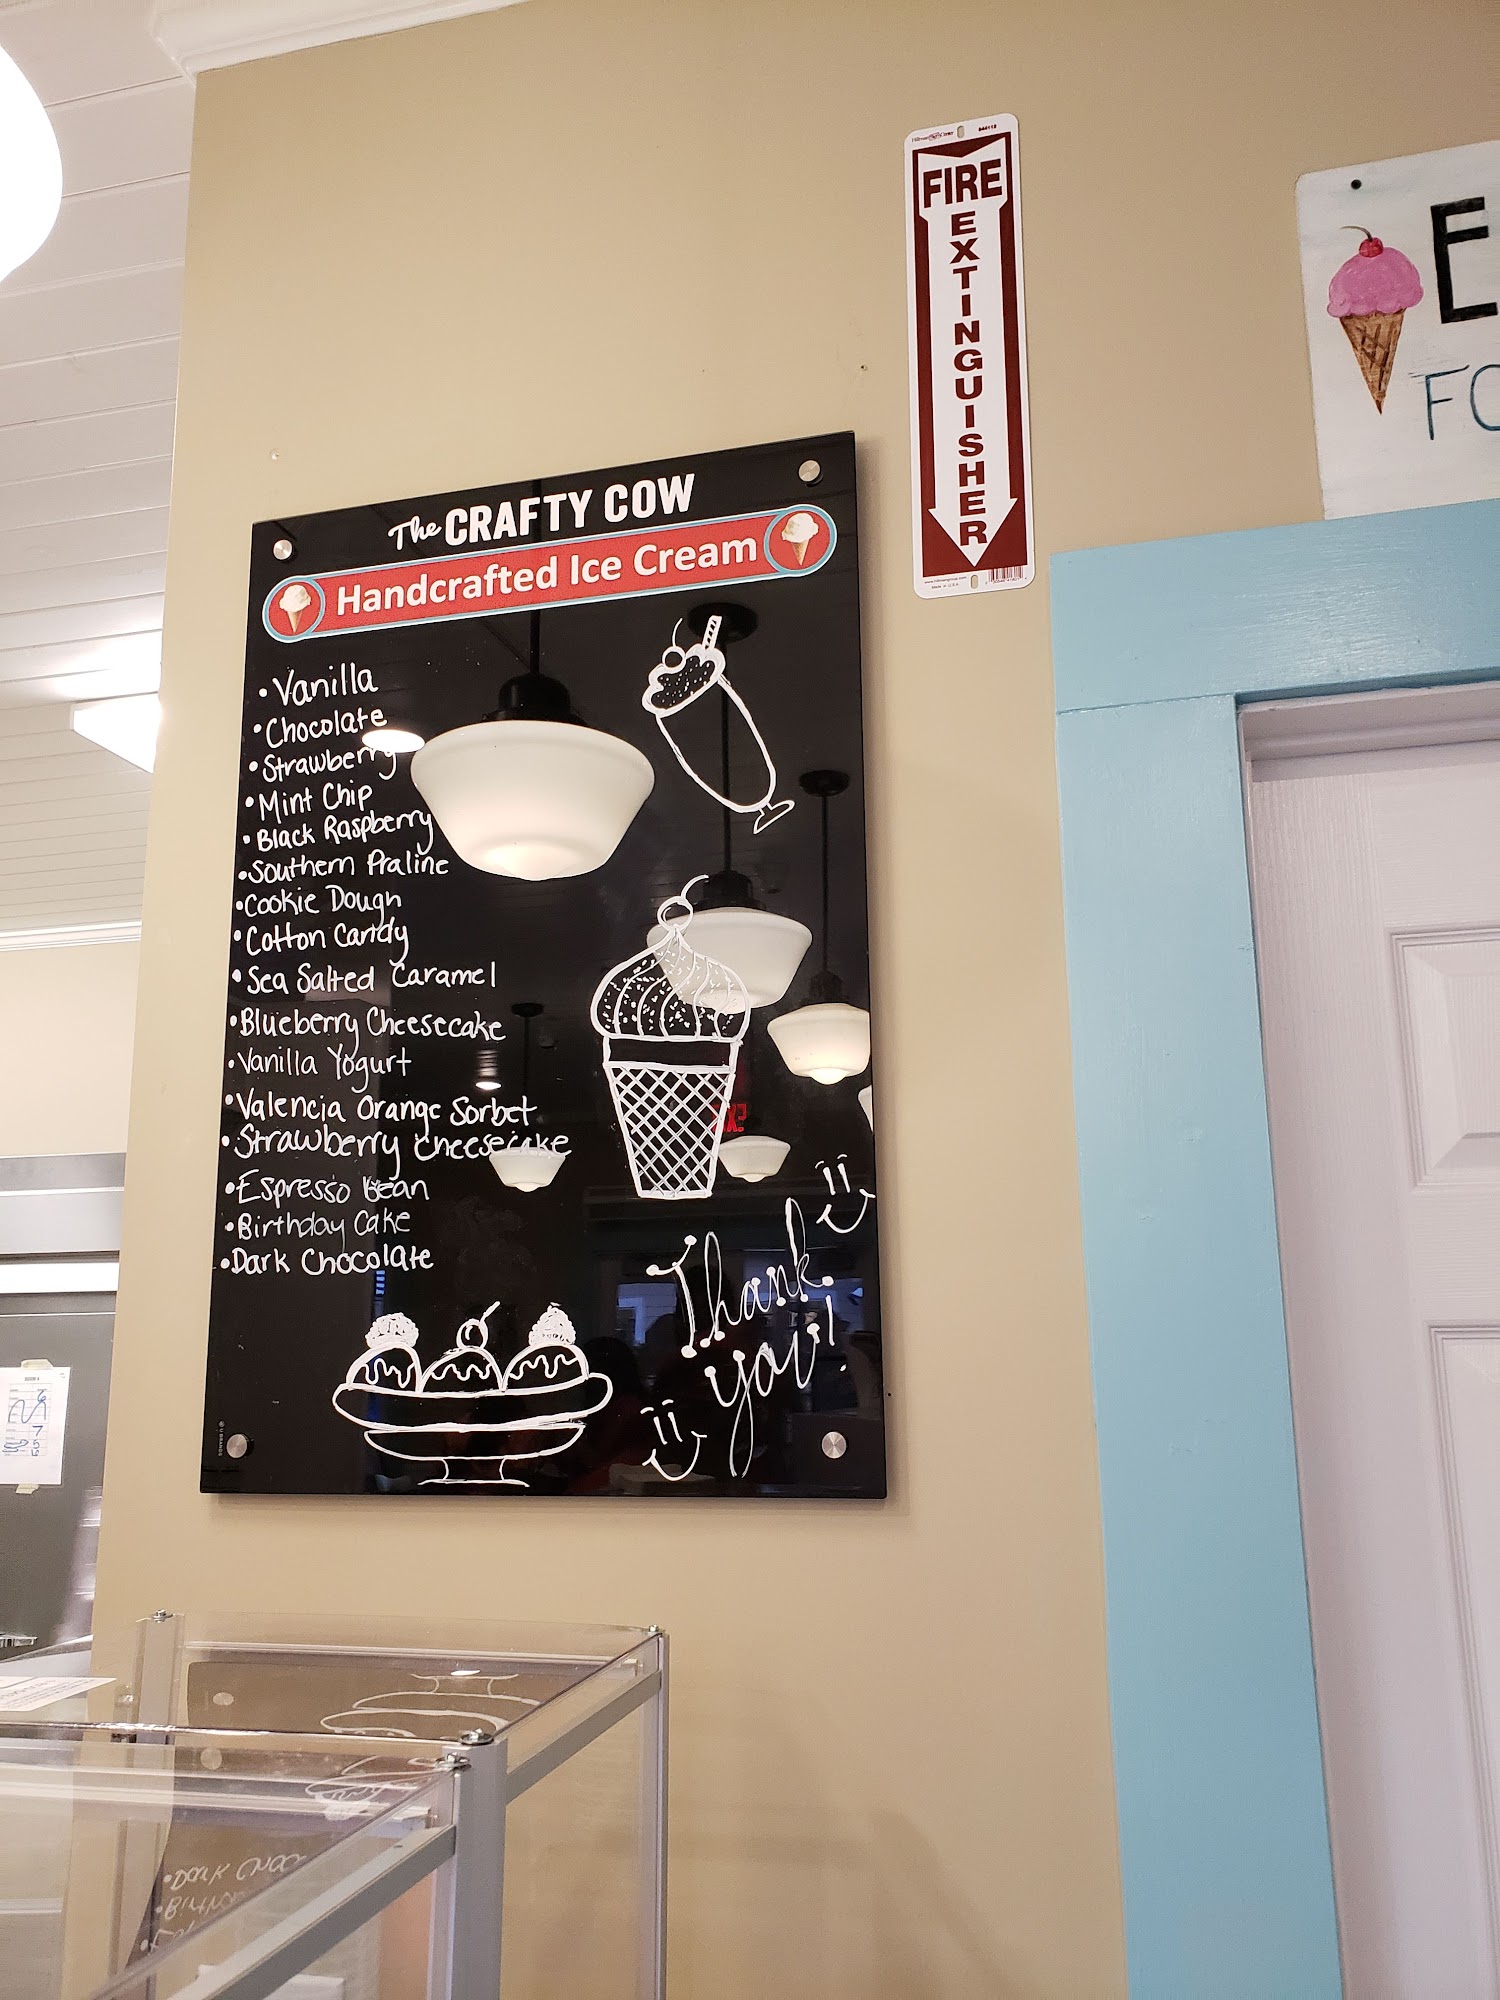 The CRAFTY COW
Handcrafted Ice Cream
• Vanilla
• Chocolate
• Strawberry
• Mint Chip
• Black Raspberry
• Southern Praline
• Cookie Dough
• Cotton Candy
• Sea Salted Caramel
• Blueberry Cheesecake
• Vanilla Yogurt
• Valencia Orange Sorbet
• Strawberry Cheesecake
• Espresso Bean
• Birthday Cake
• Dark Chocolate
Thank
you!
FIRE
EXTINGUISHER
E
FO